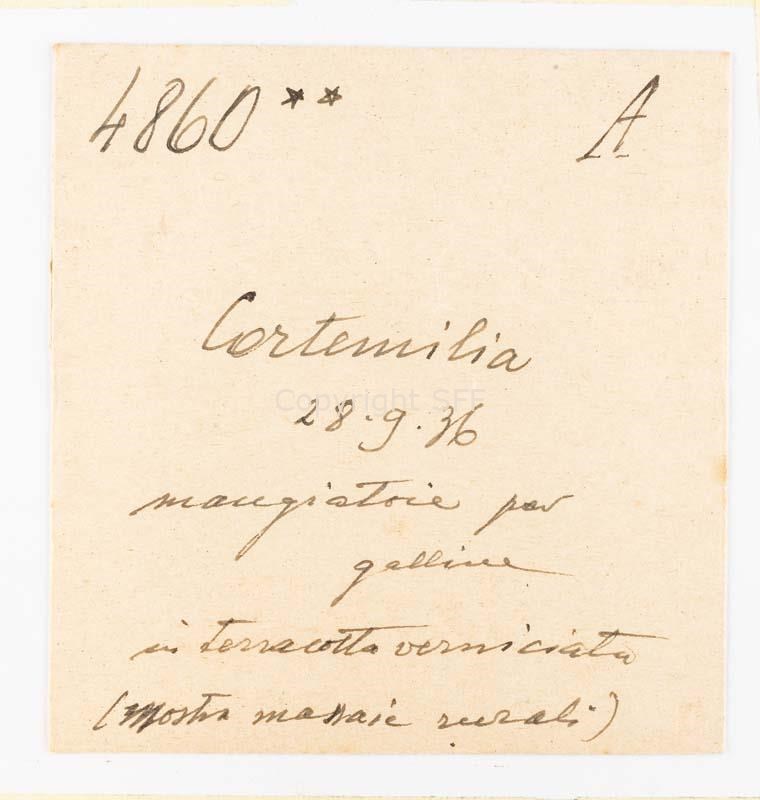 4860** A
Cortemilia
Copyright SFF
28.9.36
mangiatoie per
galline
in terracotta verniciata
(Mostra massaie rurali)